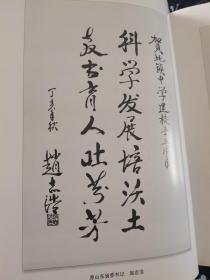 贺北镇中学建校五十五周年
科学发展培沃土
教书育人吐芬芳
丁亥年秋
赵志浩
原山东省委书记 赵志浩